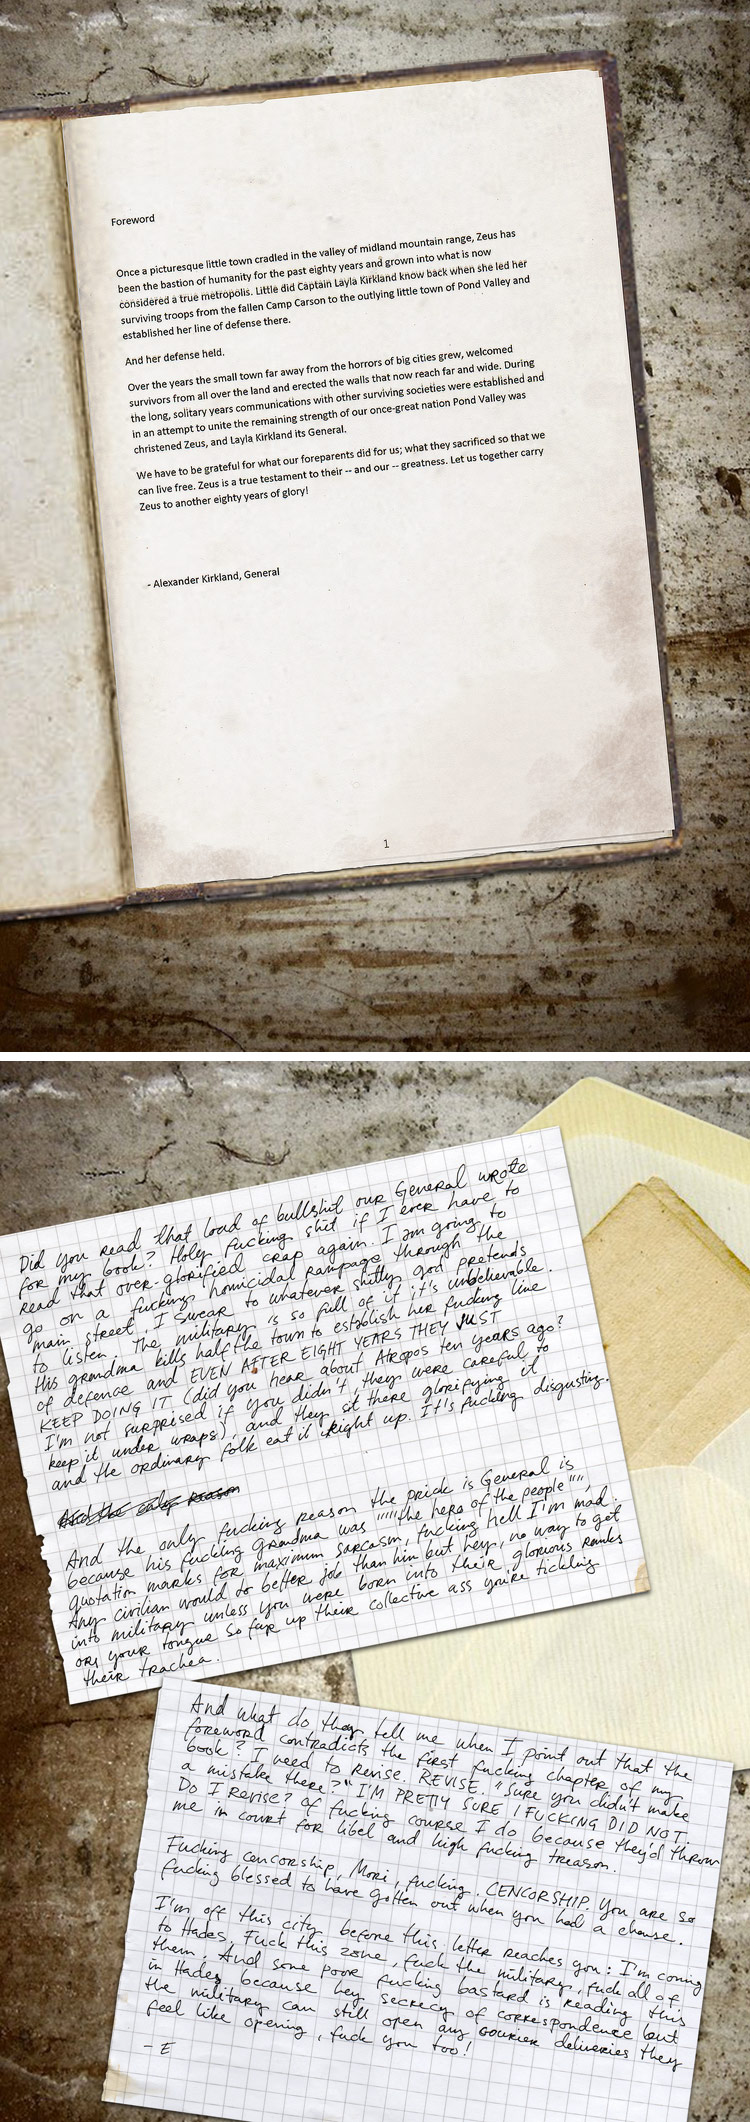 Foreword
Once a picturesque little town cradled in the valley of midland mountain range, Zeus has
been the bastion of humanity for the past eighty years and grown into what is now
considered a true metropolis. Little did Captain Layla Kirkland know back when she led her
surviving troops from the fallen Camp Carson to the outlying little town of Pond Valley and
established her line of defense there.
And her defense held.
Over the years the small town far away from the horrors of big cities grew, welcomed
survivors from all over the land and erected the walls that now reach far and wide. During
the long, solitary years communications with other surviving societies were established and
in an attempt to unite the remaining strength of our once-great nation Pond Valley was
christened Zeus, and Layla Kirkland its General.
We have to be grateful for what our foreparents did for us; what they sacrificed so that we
can live free. Zeus is a true testament to their -- and our -- greatness. Let us together carry
Zeus to another eighty years of glory!
- Alexander Kirkland, General
1
Did you read that load of bullshit our General wrote
for my book? Holy fucking shit if I ever have to
read that over-glorified crap again I am going to
go on a fucking homicidal rampage through the
main street, I swear to whatever shitty god pretends
to listen. The military is so full of it it's unbelievable.
this grandma kills half the town to establish her fucking line
of defence and EVEN AFTER EIGHT YEARS THEY JUST
KEEP DOING IT (did you hear about Atropos ten years ago?
I'm not surprised if you didn't, they were careful to
keep it under wraps), and they sit there glorifying it
and the ordinary folk eat it right up. It's fucking disgusting.
And the only reason
And the only fucking reason the prick is General is
because his fucking grandma was """"the hero of the people"""",
quotation marks for maximum sarcasm, fucking hell I'm mad.
Any civilian would do better job than him but hey, no way to get
into military unless you were born into their glorious ranks
or your tongue so far up their collective ass you're tickling
their trachea.
And what do they tell me when I point out that the
foreword contradicts the first fucking chapter of my
book? I need to revise. REVISE. "Sure you didn't make
a mistake there?" I'M PRETTY SURE I FUCKING DID NOT.
Do I revise? Of fucking course I do because they'd throw
me in court for libel and high fucking treason.
Fucking cencorship, Mori, fucking. CENCORSHIP. You are so
fucking blessed to have gotten out when you had a chanse.
I'm off this city before this letter reaches you: I'm coming
to Hades. Fuck this zone, fuck the military, fuck all of
them. And some poor fucking bastard is reading this
in Hades because hey secrecy of correspondence but
the military can still open any courier deliveries they
feel like opening, fuck you too!
- E